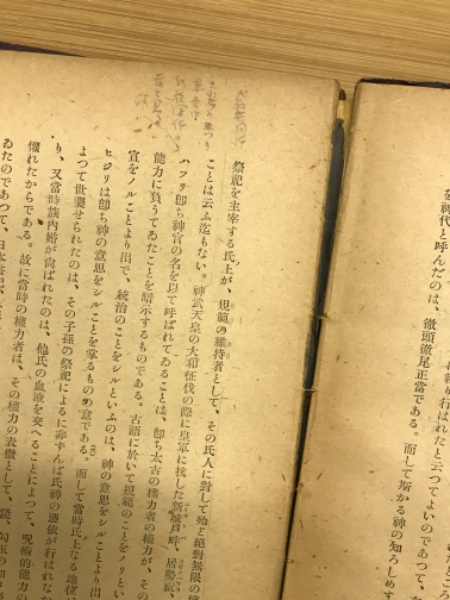 を神代と呼んだのは、徹頭徹尾正當である。而して斯かる神の知ろしめす
り行はれたと云つてよいのであつて、
祭祀を主宰する氏上が、規範の維持者として、その氏人に對して殆ど絕對無限の
ことは云ふ迄もない。神武天皇の大和征伐の際に皇軍に抗した新城戸畔、居勢祝、
ハフリ卽ち神官の名を以て呼ばれてゐることは、卽ち太古の權力者の權力が、その
能力に負うてゐたことを暗示するものである。古語に於いて規範のことをノリとい
宣をノルことより出で、統治のことをシルといふのは、神の意思をシルことより出
ヒジリは卽ち神の意思をシルことを掌るものの意である。而して當時氏上なる地位
よつて世襲せられたのは、その子孫の祭祀によるに非ずんば氏神の憑依が行はれな
り、又當時族內婚が尙ばれたのは、他氏の血液を交へることによつて、呪術的能力の
懼れたからである。故に當時の權力者は、その權力の表徵として、鏡、勾玉の如き
ゐたのであつて、日本書紀